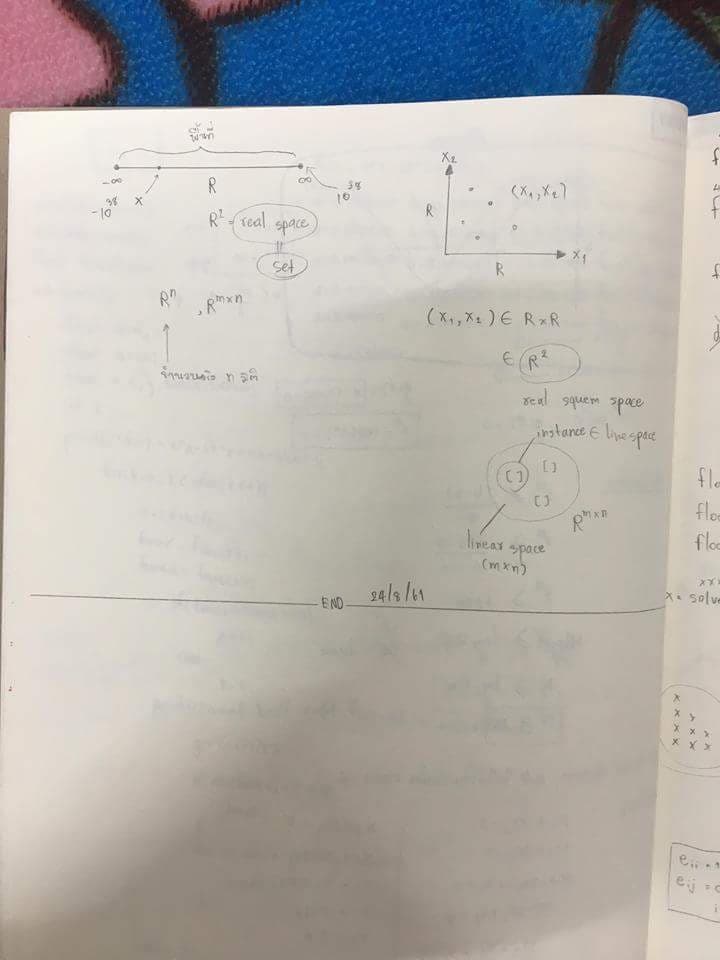 พื้นที่
-∞ R ∞
-10^38 x 10^38
R² = real space
set
R^n , R^m×n
จำนวนจริง n มิติ
x₂
R (x₁, x₂)
R x₁
(x₁, x₂) ∈ R × R
∈ R²
real squem space
instance ∈ line space
[ ] [ ]
[ ]
R^m×n
linear space
(m×n)
END 24/8/61
f
f
f
flo
floo
floo
x x
x = solv
x
x x
x x x
x x x
eᵢᵢ =
eᵢⱼ =
i